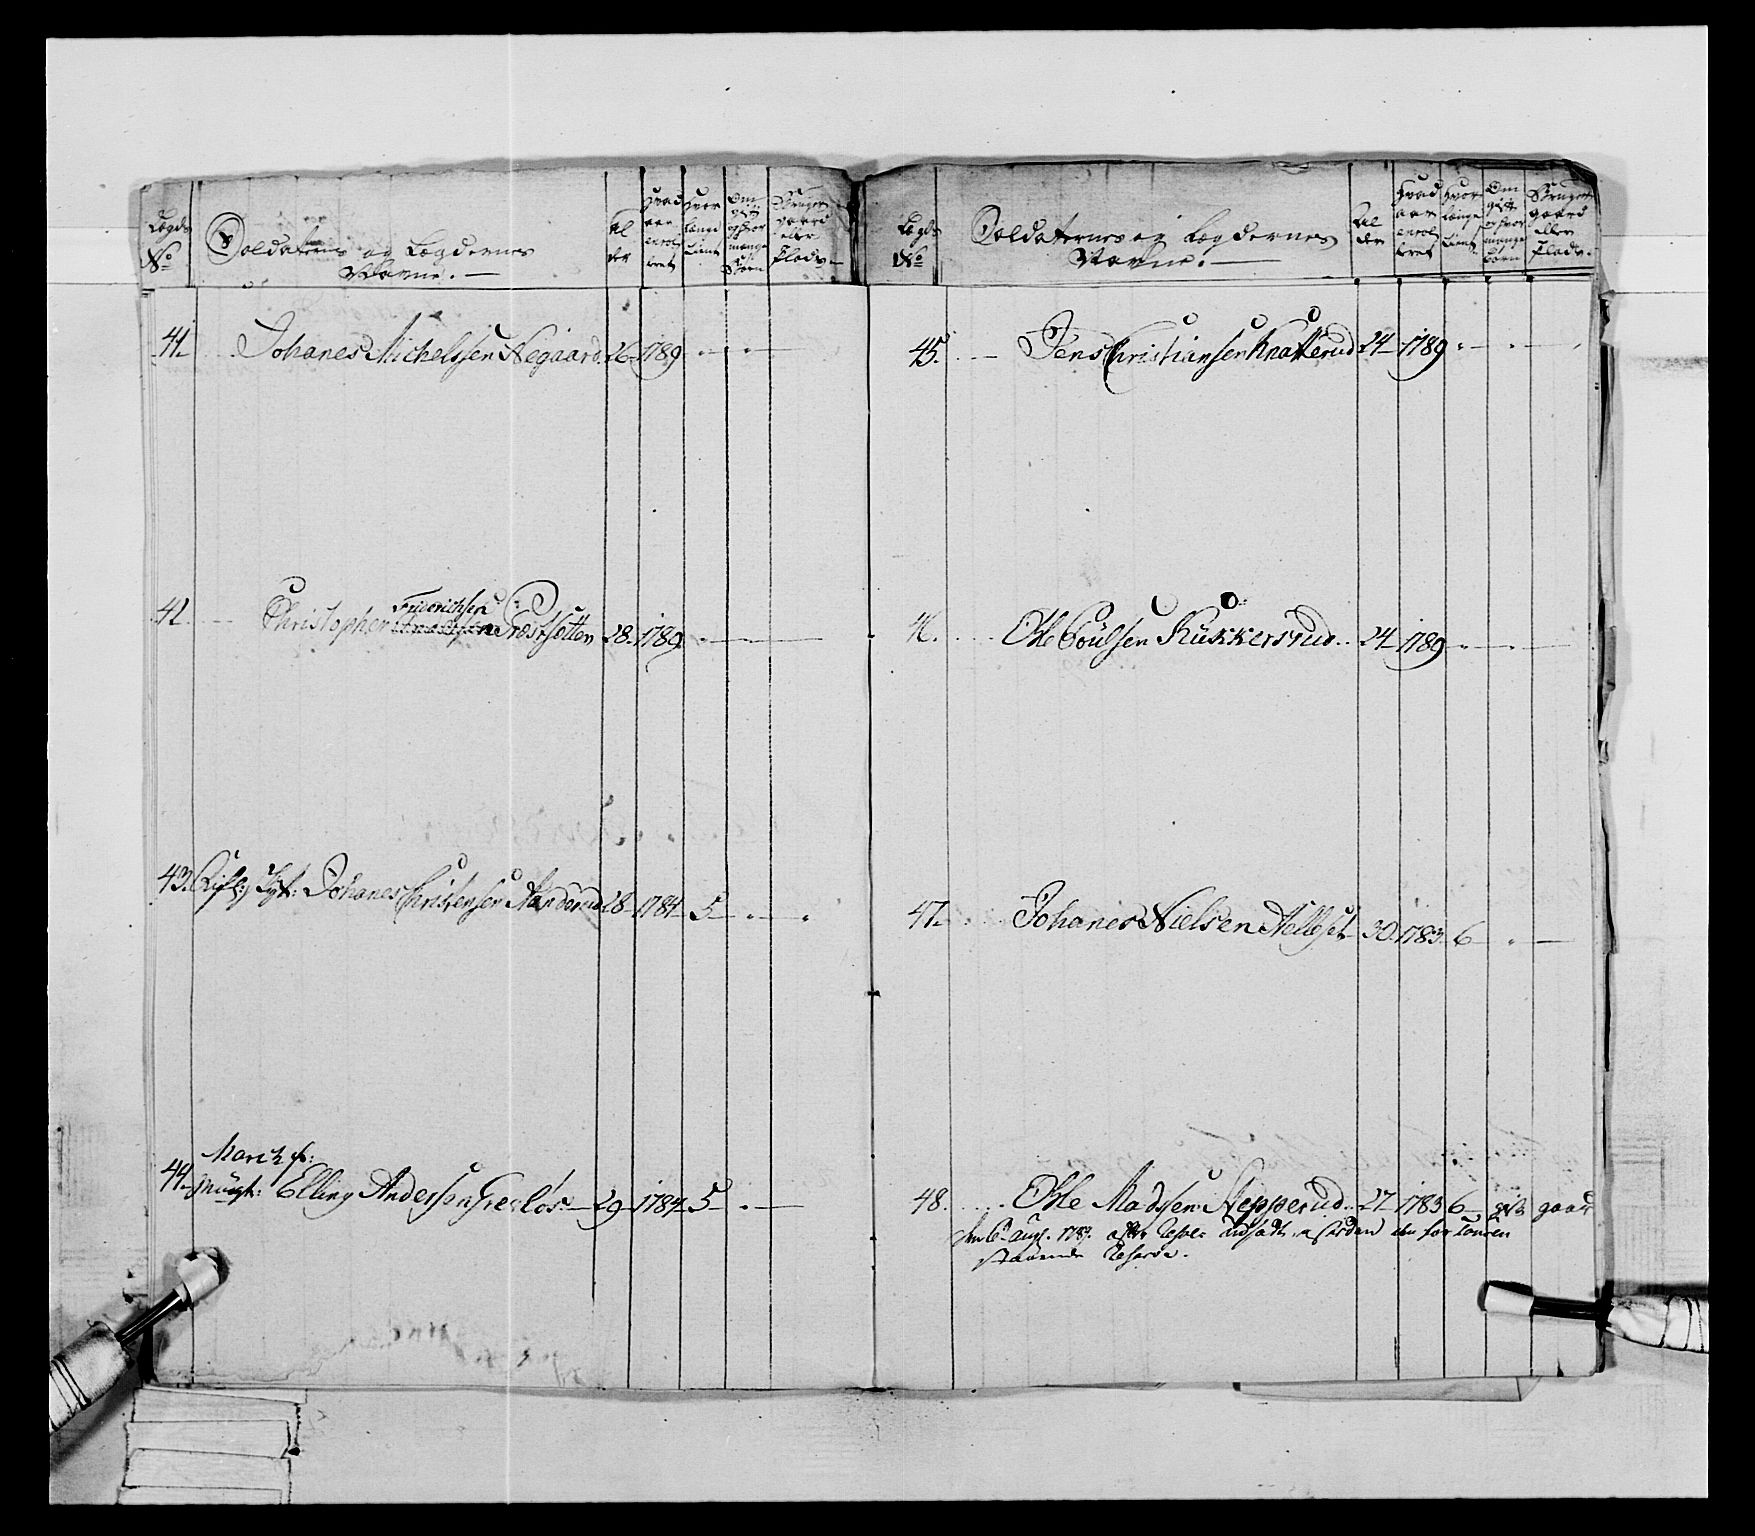 Lægds No
Soldaternes og Lægdernes Navne.
Al der
Hvad aar enrol leret
Hvor længe tient
Om gift og hvor mange Børn
Bruger gaard eller Plads.
41. Johanes Michelssen Negaard. 26 1789
Fridrichsen
42. Christopher Trøstsetten 28. 1789
43. Johanes Christensen 28 1784 5
44. Elling Andersson 29 1784 5
Lægds No
Soldaternes og Lægdernes Navne.
Al der
Hvad aar enrol leret
Hvor længe tient
Om gift og hvor mange Børn
Bruger gaard eller Plads.
45. Jens Christiansen Knatterud 24 1789
46. Ole Poulsen Kukkersrud 24 1789
47. Johanes Nielsen 30 1783 6
48. Ole Madssen Nepperud 27 1783 6 gift gaar
den 6 Aug. 1789